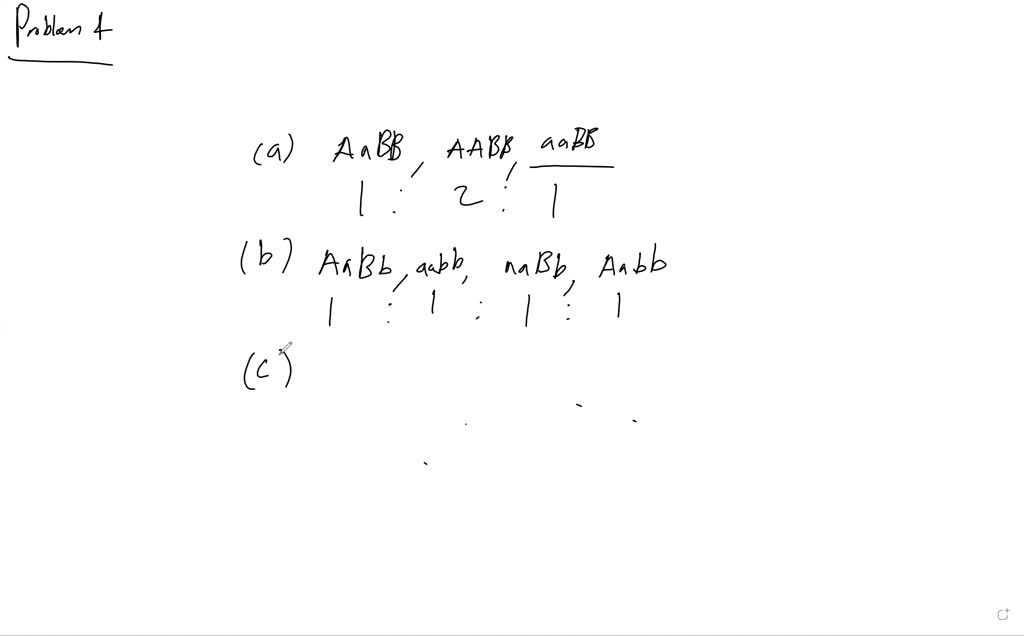 Problem 4
(a) AaBB, AABB, aaBB
1 : 2 : 1
(b) AaBb, aabb, aaBb, Aabb
1 : 1 : 1 : 1
(c)